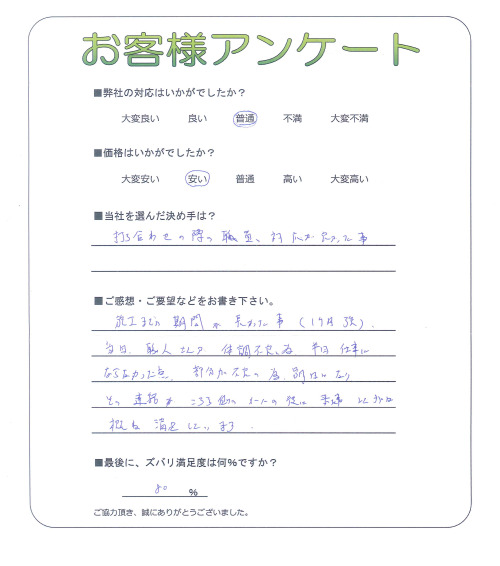 お客様アンケート
■弊社の対応はいかがでしたか？
大変良い 良い 普通 不満 大変不満
■価格はいかがでしたか？
大変安い 安い 普通 高い 大変高い
■当社を選んだ決め手は？
打ち合わせの際の職員、対応が良かった事
■ご感想・ご要望などをお書き下さい。
施工までの期間が長かった事（1ヶ月強）.
当日、職人さんが体調不良の為 半日仕事に
ならなかった点、部品不良の為、
その連絡が
概ね満足しています.
■最後に、ズバリ満足度は何%ですか？
80 %
ご協力頂き、誠にありがとうございました。